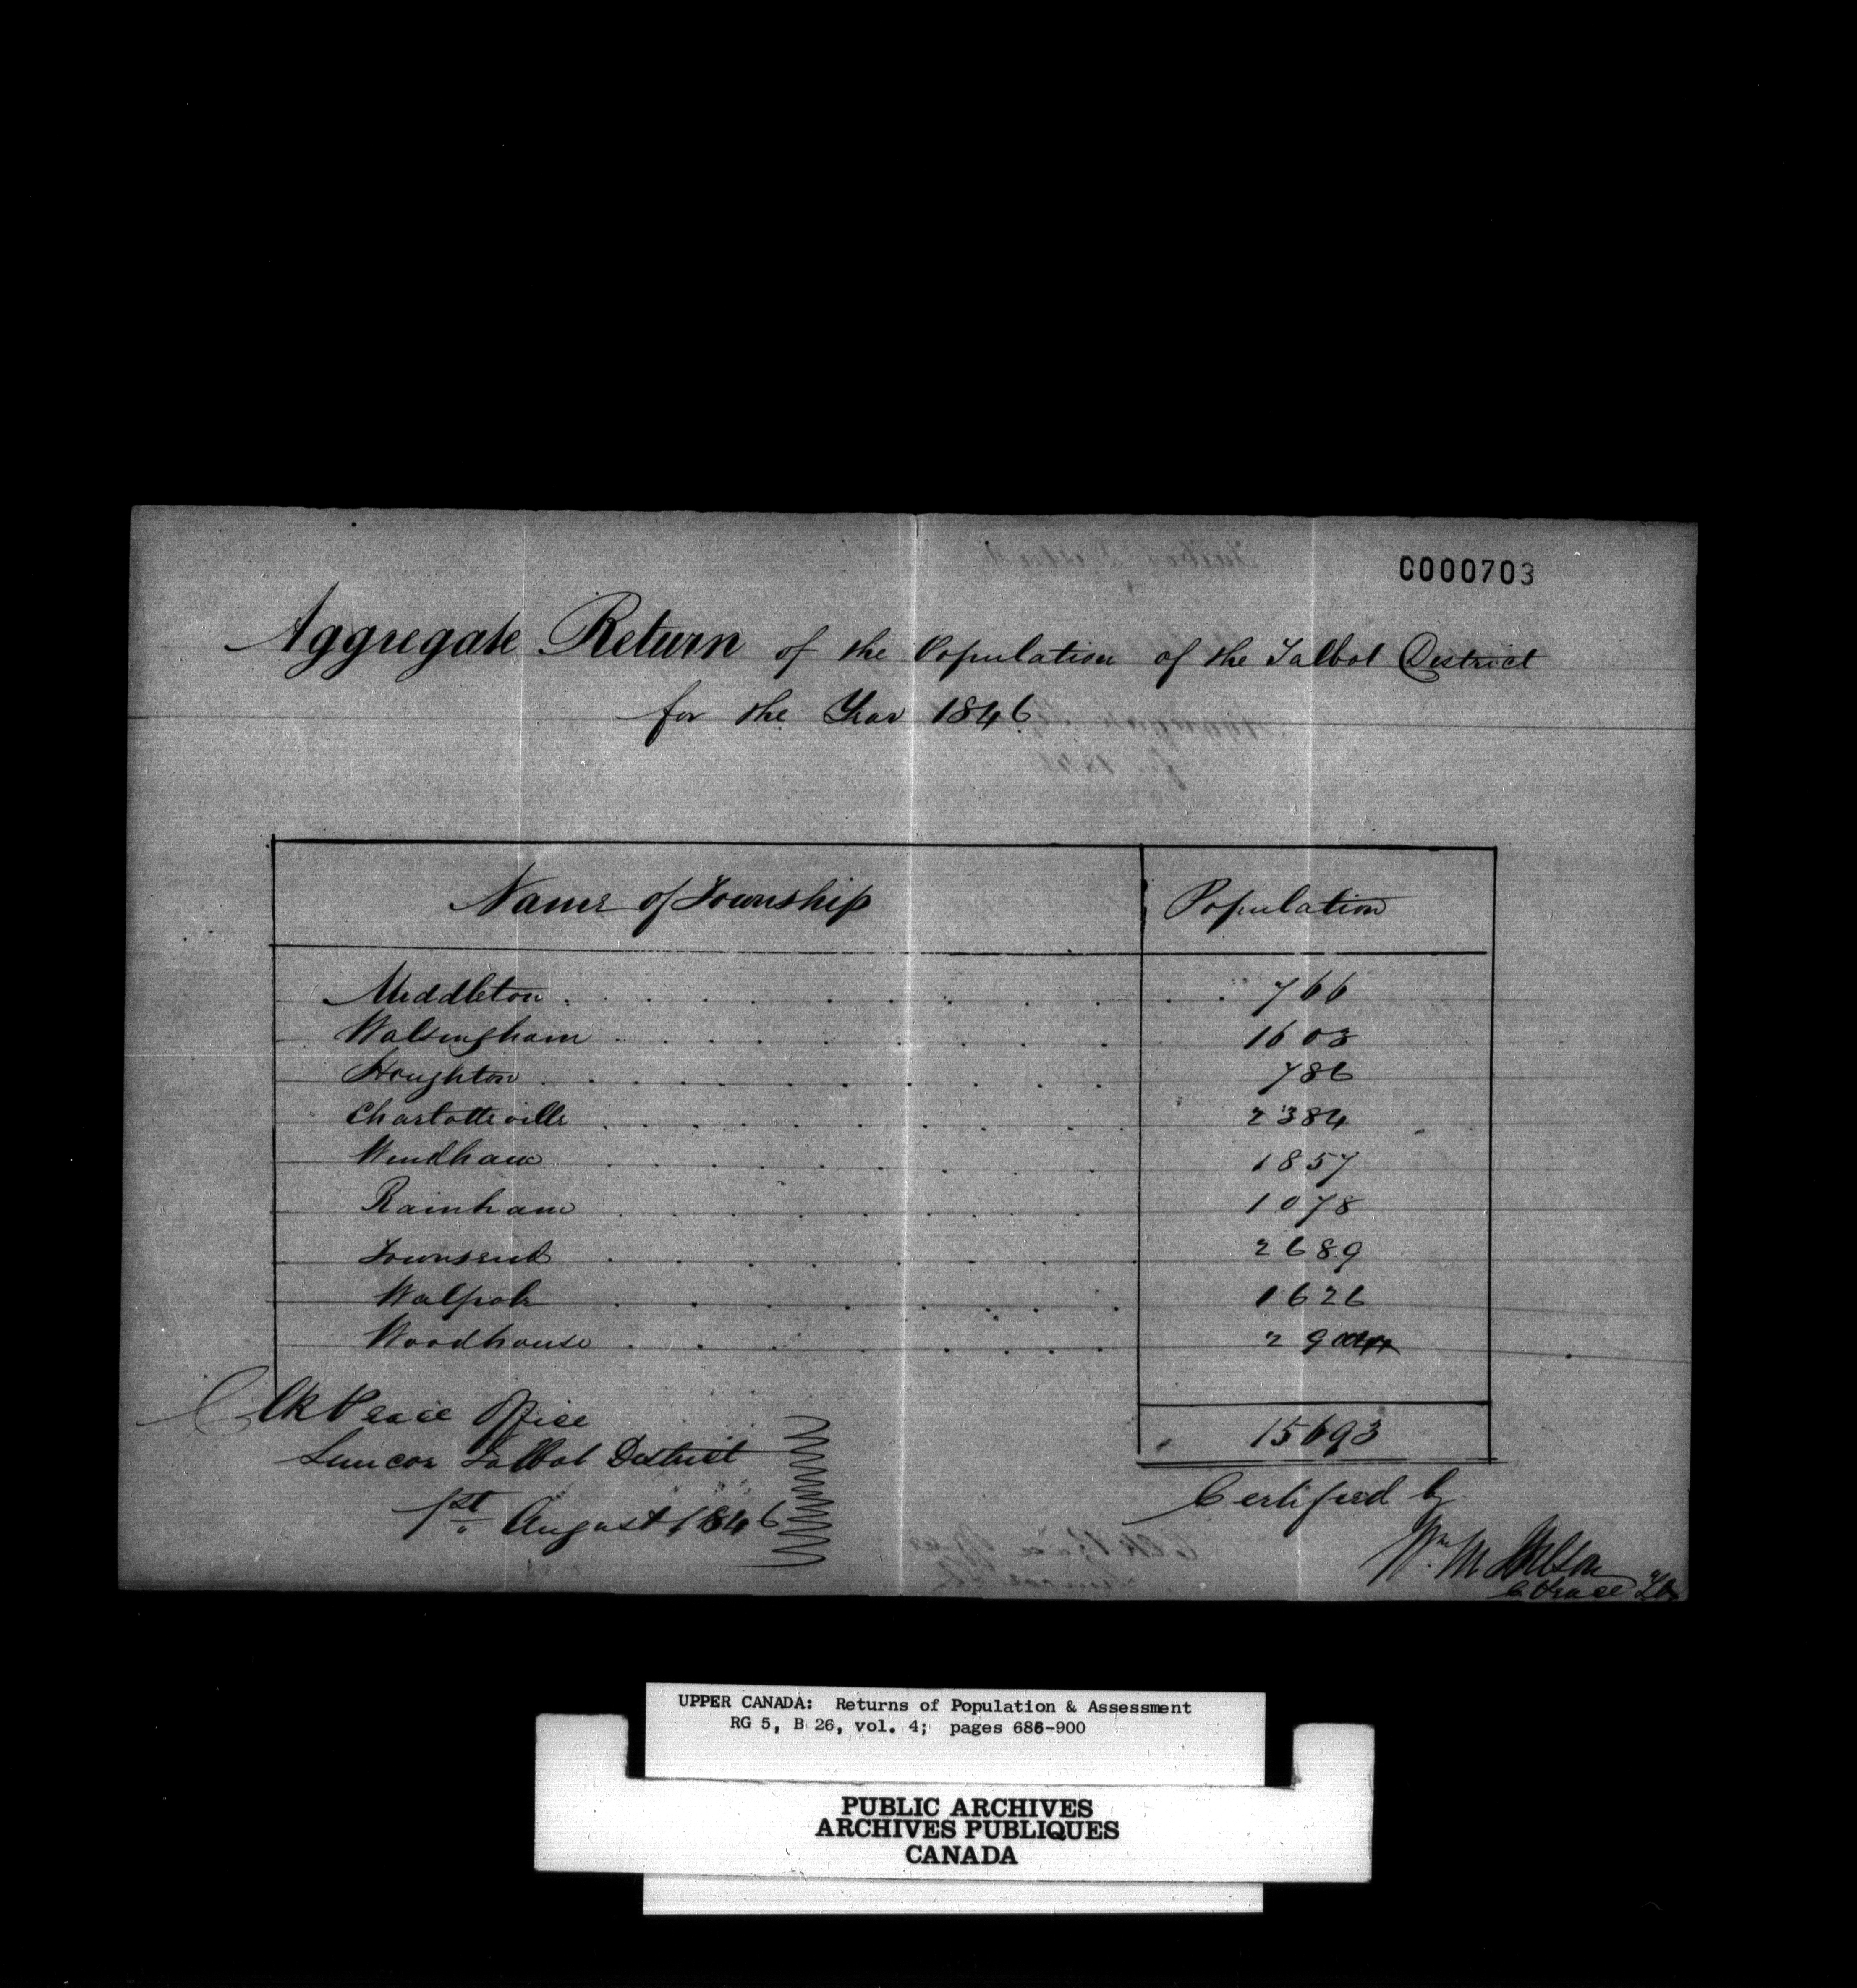 C000703
Aggregate Return of the Population of the Talbot District
for the Year 1846
Name of Township Population
Middleton 766
Walsingham 1603
Houghton 786
Charlotteville 2384
Windham 1857
Rainham 1078
Townsend 2689
Walpole 1626
Woodhouse 29
15693
Clk Peace Office
Simcoe Talbot District
1st August 1846
Certified by
Wm M Wilson
C Peace T.D.
UPPER CANADA: Returns of Population & Assessment
RG 5, B 26, vol. 4; pages 686-900
PUBLIC ARCHIVES
ARCHIVES PUBLIQUES
CANADA